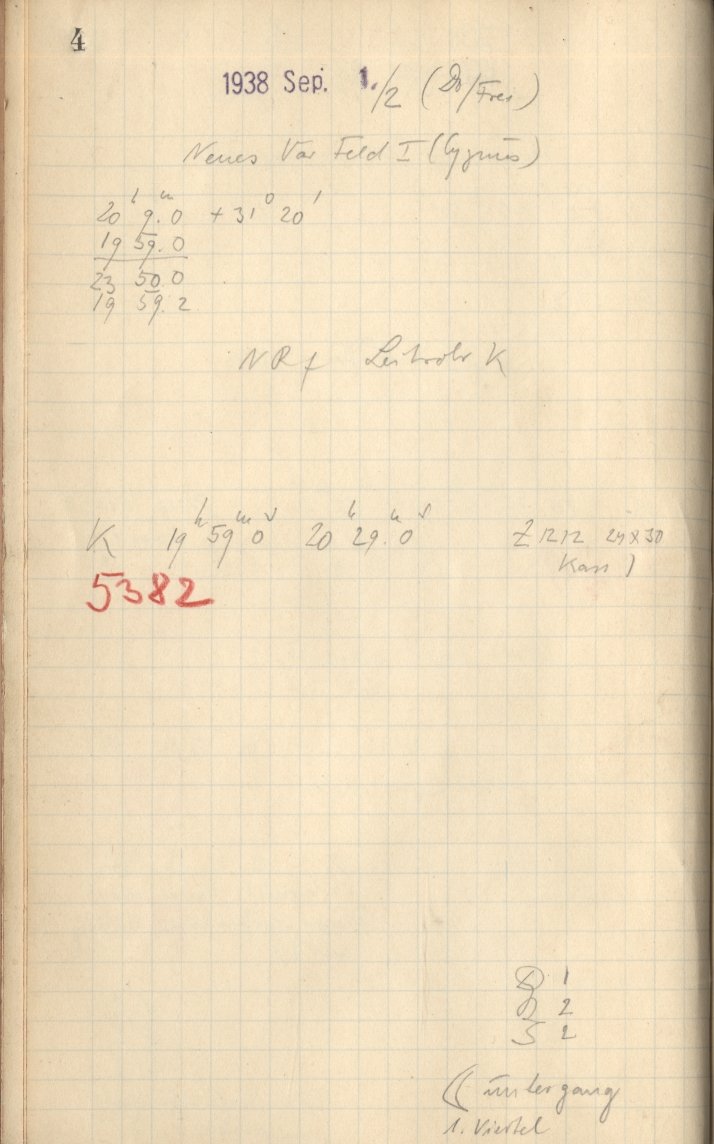 4
1938 Sep. 1./2 (Do/Frei)
Neues Var Feld I (Cygnus)
20ʰ 9.ᵐ0 + 31° 20'
19 59.0
23 50.0
19 59.2
NRf Leitrohr K
K 19ʰ 59ᵐ 0ˢ 20ʰ 29.ᵐ 0ˢ Z 1212 24x30
Kass )
5382
D 1
R 2
S 2
untergang
1. Viertel